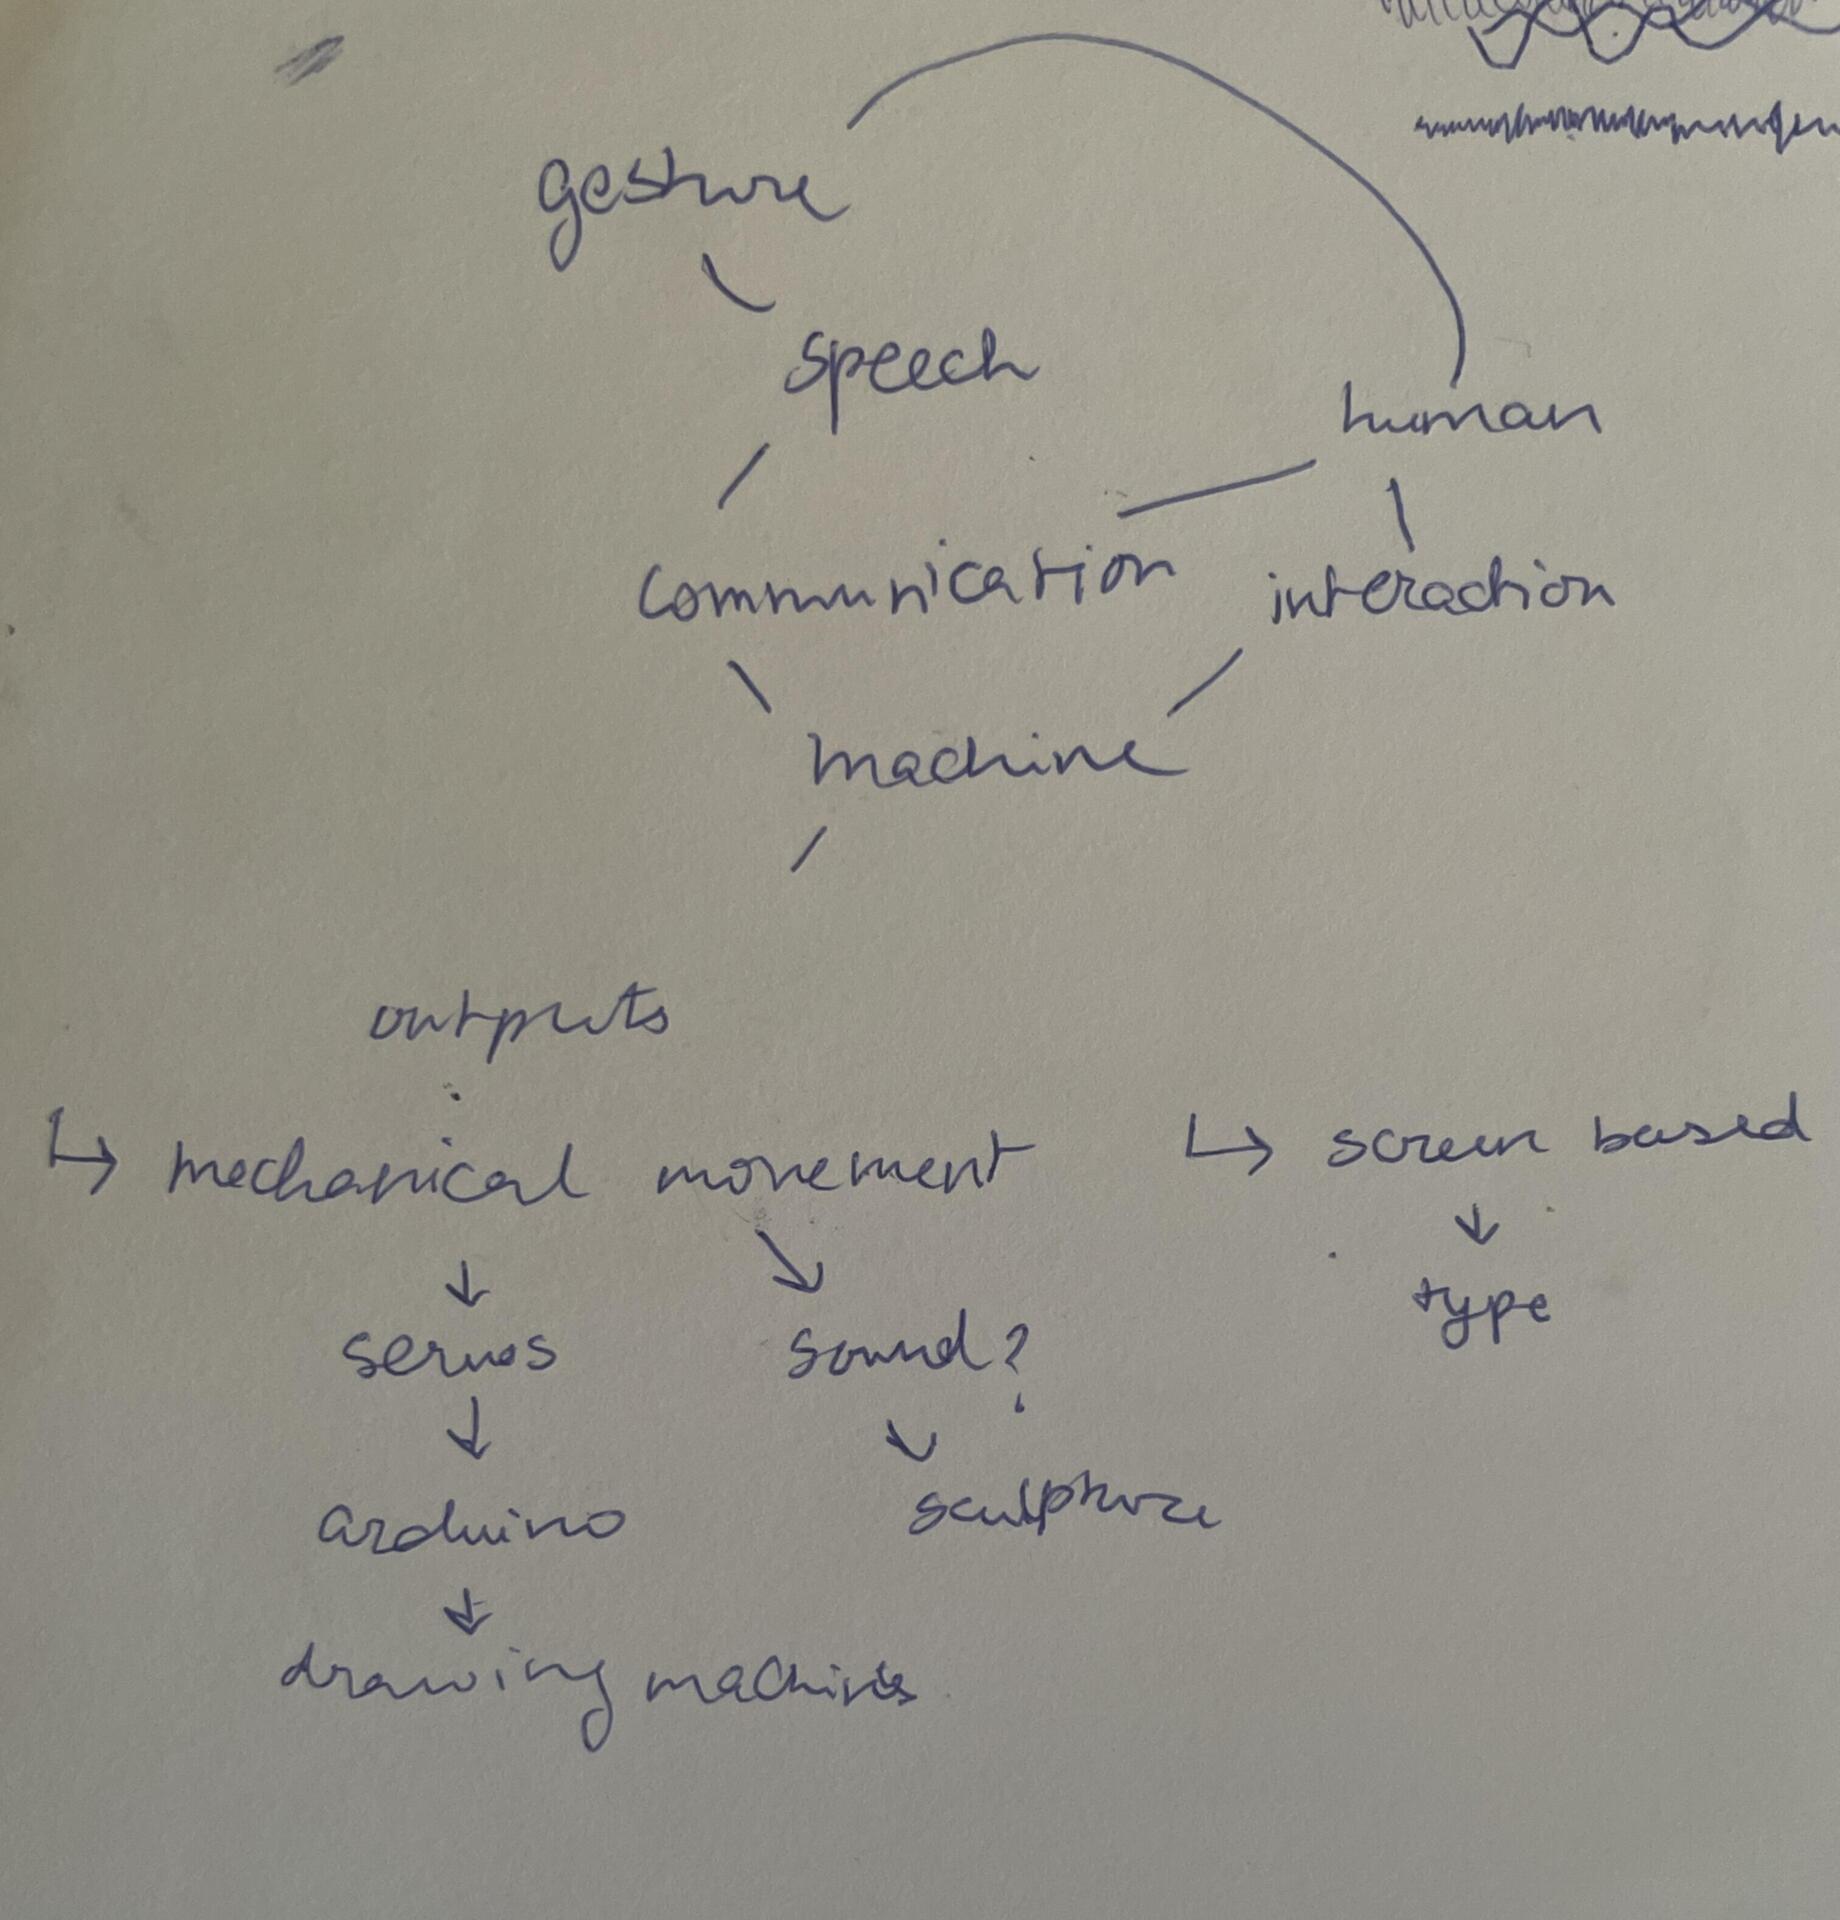 gesture
speech
human
communication interaction
machine
outputs
↳ mechanical movement ↳ screen based
↓ ↘ ↓
servos sound? type
↓ ↘
arduino sculpture
↓
drawing machines